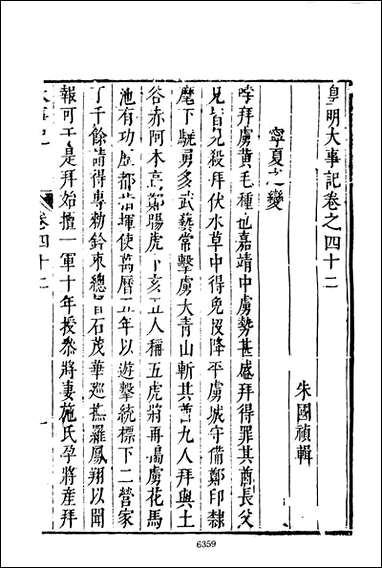 皇明大事記卷之四十二
朱國禎輯
寧夏之變
哱拜虜黃毛種也嘉靖中虜勢甚盛拜得罪其酋長父
兄皆見殺拜伏水草中得免投降平虜城守備鄭印隸
麾下驍勇多武藝常擊虜大青山斬其酋九人拜與土
谷赤阿木高鄭暘虎丁亥五人稱五虎將再搗虜花馬
池有功歷都指揮使萬曆五年以遊擊統標下二營家
丁千餘請得專勑鈐束總督石茂華巡撫羅鳳翔以聞
報可于是拜始擅一軍十年授叅將妻施氏孕將產拜
大事記
卷四十二
一
6359